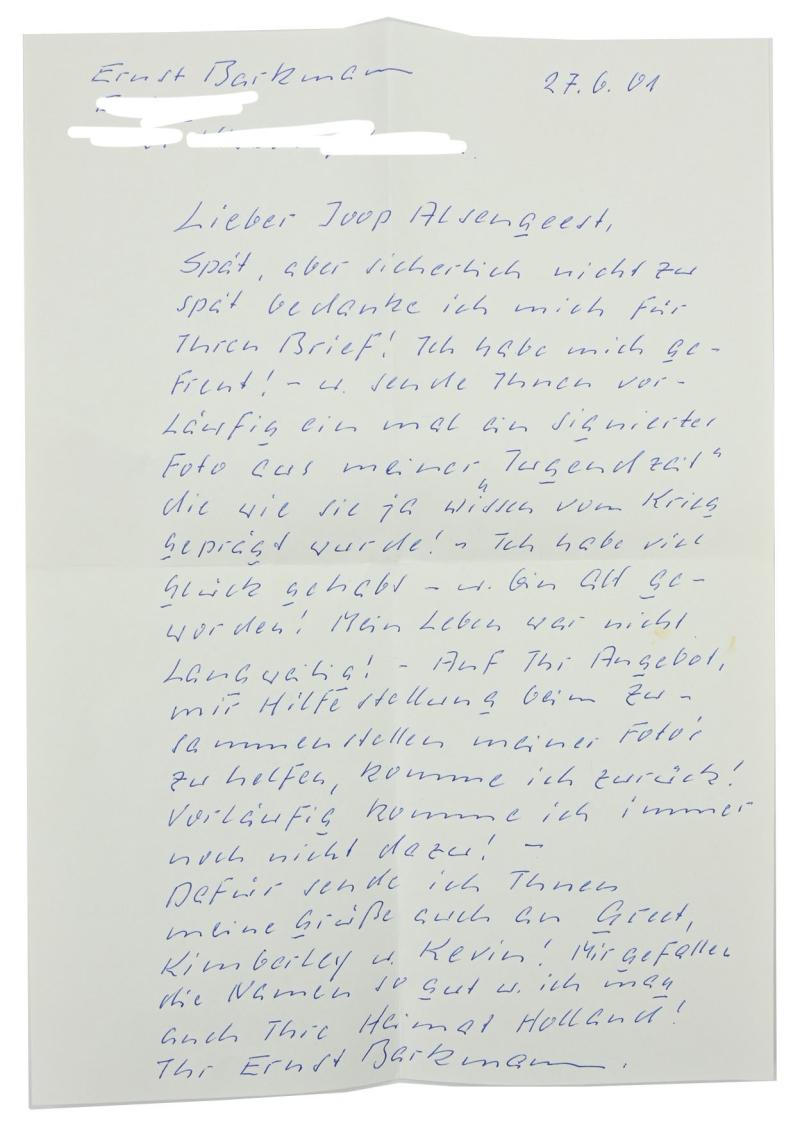 Ernst Barkmann
27.6.01
Lieber Joop Alsengeest,
Spät, aber sicherlich nicht zu
spät bedanke ich mich für
Ihren Brief! Ich habe mich ge-
freut! - u. sende Ihnen vor-
läufig ein mal ein signierter
Foto aus meiner "Jugendzeit"
die wie sie ja wissen vom Krieg
geprägt wurde! - Ich habe viel
Glück gehabt - u. bin alt ge-
worden! Mein Leben war nicht
langweilig! - Auf Ihr Angebot,
mir Hilfestellung beim Zu-
sammenstellen meiner Foto's
zu helfen, komme ich zurück!
Vorläufig komme ich immer
noch nicht dazu! -
Dafür sende ich Ihnen
meine Grüße auch an Greet,
Kimberley u. Kevin! Mir gefallen
die Namen so gut u. ich mag
auch Ihre Heimat Holland!
Ihr Ernst Barkmann.